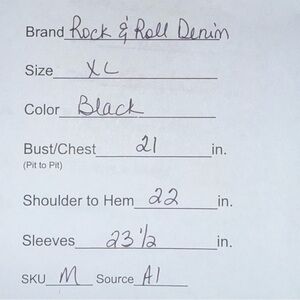 Brand Rock & Roll Denim
Size XL
Color Black
Bust/Chest 21 in.
(Pit to Pit)
Shoulder to Hem 22 in.
Sleeves 23 1/2 in.
SKU M Source A1